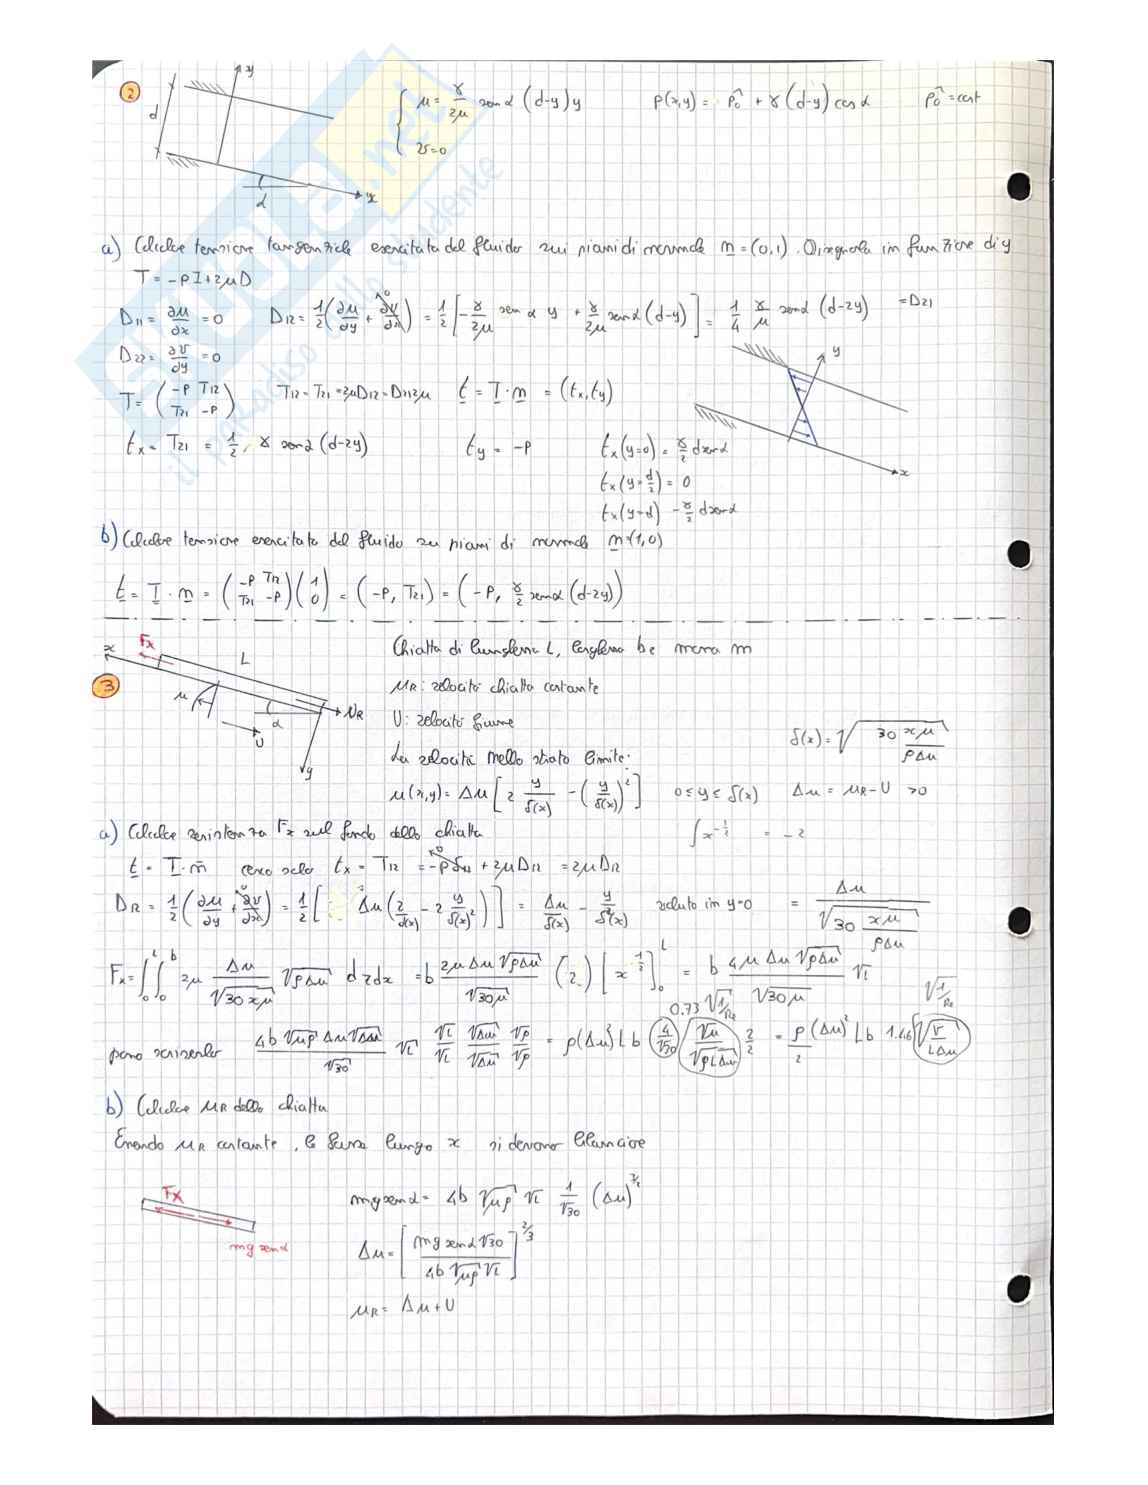 2
y
d
α
x
{ u = γ/2μ sen α (d-y) y
v = 0
p(x,y) = p̂₀ + γ (d-y) cos α    p̂₀ = cost
a) Calcolare tensione tangenziale esercitata dal fluido sui piani di normale n = (0,1). Disegnarla in funzione di y
T = -pI + 2μD
D₁₁ = ∂u/∂x = 0    D₁₂ = 1/2 (∂u/∂y + ∂v/∂x) = 1/2 [-γ/2μ sen α y + γ/2μ sen α (d-y)] = 1/4 γ/μ sen α (d-2y) = D₂₁
D₂₂ = ∂v/∂y = 0
T = (-p T₁₂ / T₂₁ -p)    T₁₂ = T₂₁ = 2μD₁₂ = D₂₁2μ    t = T · n = (tx, ty)
tx = T₂₁ = 1/2 γ sen α (d-2y)    ty = -p    tx(y=0) = γ/2 d sen α
tx(y=d/2) = 0
tx(y=d) -γ/2 d sen α
y
x
b) Calcolare tensione esercitata dal fluido su piani di normale n=(1,0)
t = T · n = (-p T₁₂ / T₂₁ -p)(1 / 0) = (-p, T₂₁) = (-p, γ/2 sen α (d-2y))
3
x
Fx
L
u
α
UR
U
y
Chiatta di lunghezza L, larghezza b e massa m
uR: velocità chiatta costante
U: velocità fiume
La velocità nello strato limite:
u(x,y) = Δu [2 y/δ(x) - (y/δ(x))²]    0 ≤ y ≤ δ(x)    Δu = uR - U > 0
δ(x) = √(30 xμ/ρΔu)
∫x^(-1/2) = -2
a) Calcolare resistenza Fx sul fondo della chiatta
t = T · n    cerco solo tx = T₁₂ = -pδ₁₂ + 2μD₁₂ = 2μD₁₂
D₁₂ = 1/2 (∂u/∂y + ∂v/∂x) = 1/2 [Δu (2/δ(x) - 2 y/δ(x)²)] = Δu/δ(x) - y/δ²(x) valuto in y=0 = Δu/√(30 xμ/ρΔu)
Fx = ∫₀ᴸ∫₀ᵇ 2μ Δu/√(30xμ) √(ρΔu) dzdx = b 2μΔu√(ρΔu)/√(30μ) (2) [x^(1/2)]₀ᴸ = b 4μΔu√(ρΔu)/√(30μ) √L
0.73 √(1/Re)    √(1/Re)
posso scriverlo 4b√(μρ) Δu√Δu/√30 √L √L/√L √Δu/√Δu √ρ/√ρ = ρ(Δu)² L b (4/√30) √μ/√(ρLΔu) 2/2 = ρ/2 (Δu)² L b 1.46 √(ν/LΔu)
b) Calcolare uR della chiatta
Essendo uR costante, le forze lungo x si devono bilanciare
Fx
mg sen α
mg sen α = 4b √(μρ) √L 1/√30 (Δu)^(3/2)
Δu = [mg sen α √30 / 4b √(μρ) √L]^(2/3)
uR = Δu + U
skuola.net
il paradiso dello studente